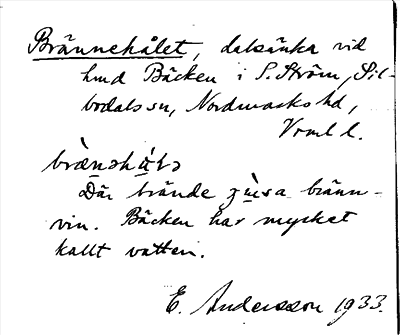 Brännehålet, dalsänka vid
hmd Bäcken i S. Ström, Sil-
bodals sn, Nordmarks hd,
Vrml l.
Där brände
bränn-
vin. Bäcken har mycket
kallt vatten.
E. Andersson 1933.